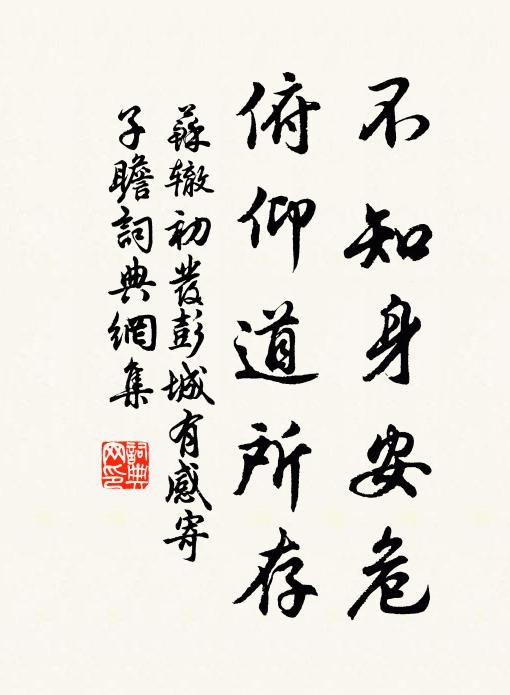 不知身安危
俯仰道所存
蘇轍初發彭城有感寄
子瞻詞典網集
詞典
网印